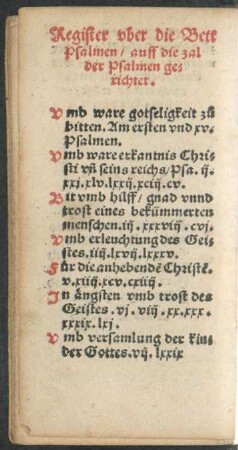 Register vber die Bett
Psalmen / auff die zal
der Psalmen ge⸗
richtet.
Vmb ware gotseligkeit zů
bitten. Am ersten vnd xv.
Psalmen.
Vmb ware erkantnis Chri⸗
sti vñ seins reichs / Psa. ij.
xxj. xlv. lxxij. xciij. cv.
Bit vmb hilff / gnad vnnd
trost eines bekümmerten
menschen. iij. xxxviij. cvj.
Vmb erleuchtung des Gei⸗
stes. iiij. lxvij. lxxxv.
Für die anhebende Christē.
v. xiiij. xcv. cxiiij.
In ängsten vmb trost des
Geistes. vj. viij. xx. xxx.
xxxix. lxj.
Vmb versamlung der kin⸗
der Gottes. vij. lxxix